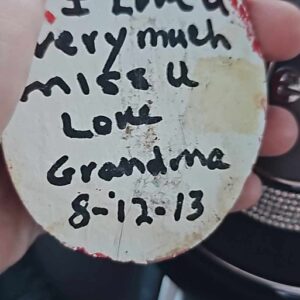 I Love u
very much
miss u
Love
Grandma
8-12-13